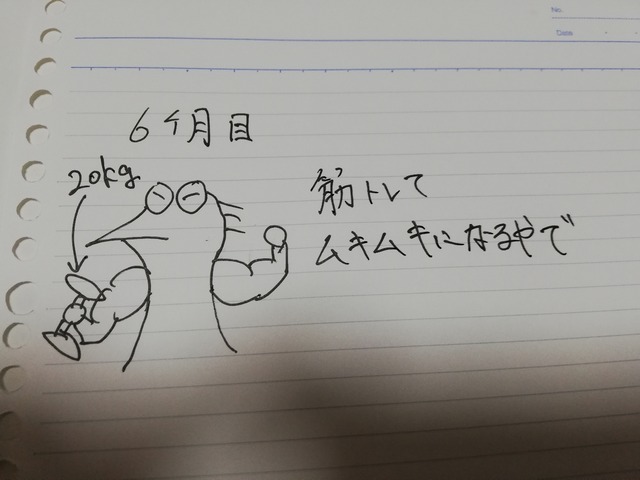 No.
Date
6ヶ月目
20kg
筋トレで
ムキムキになるやで